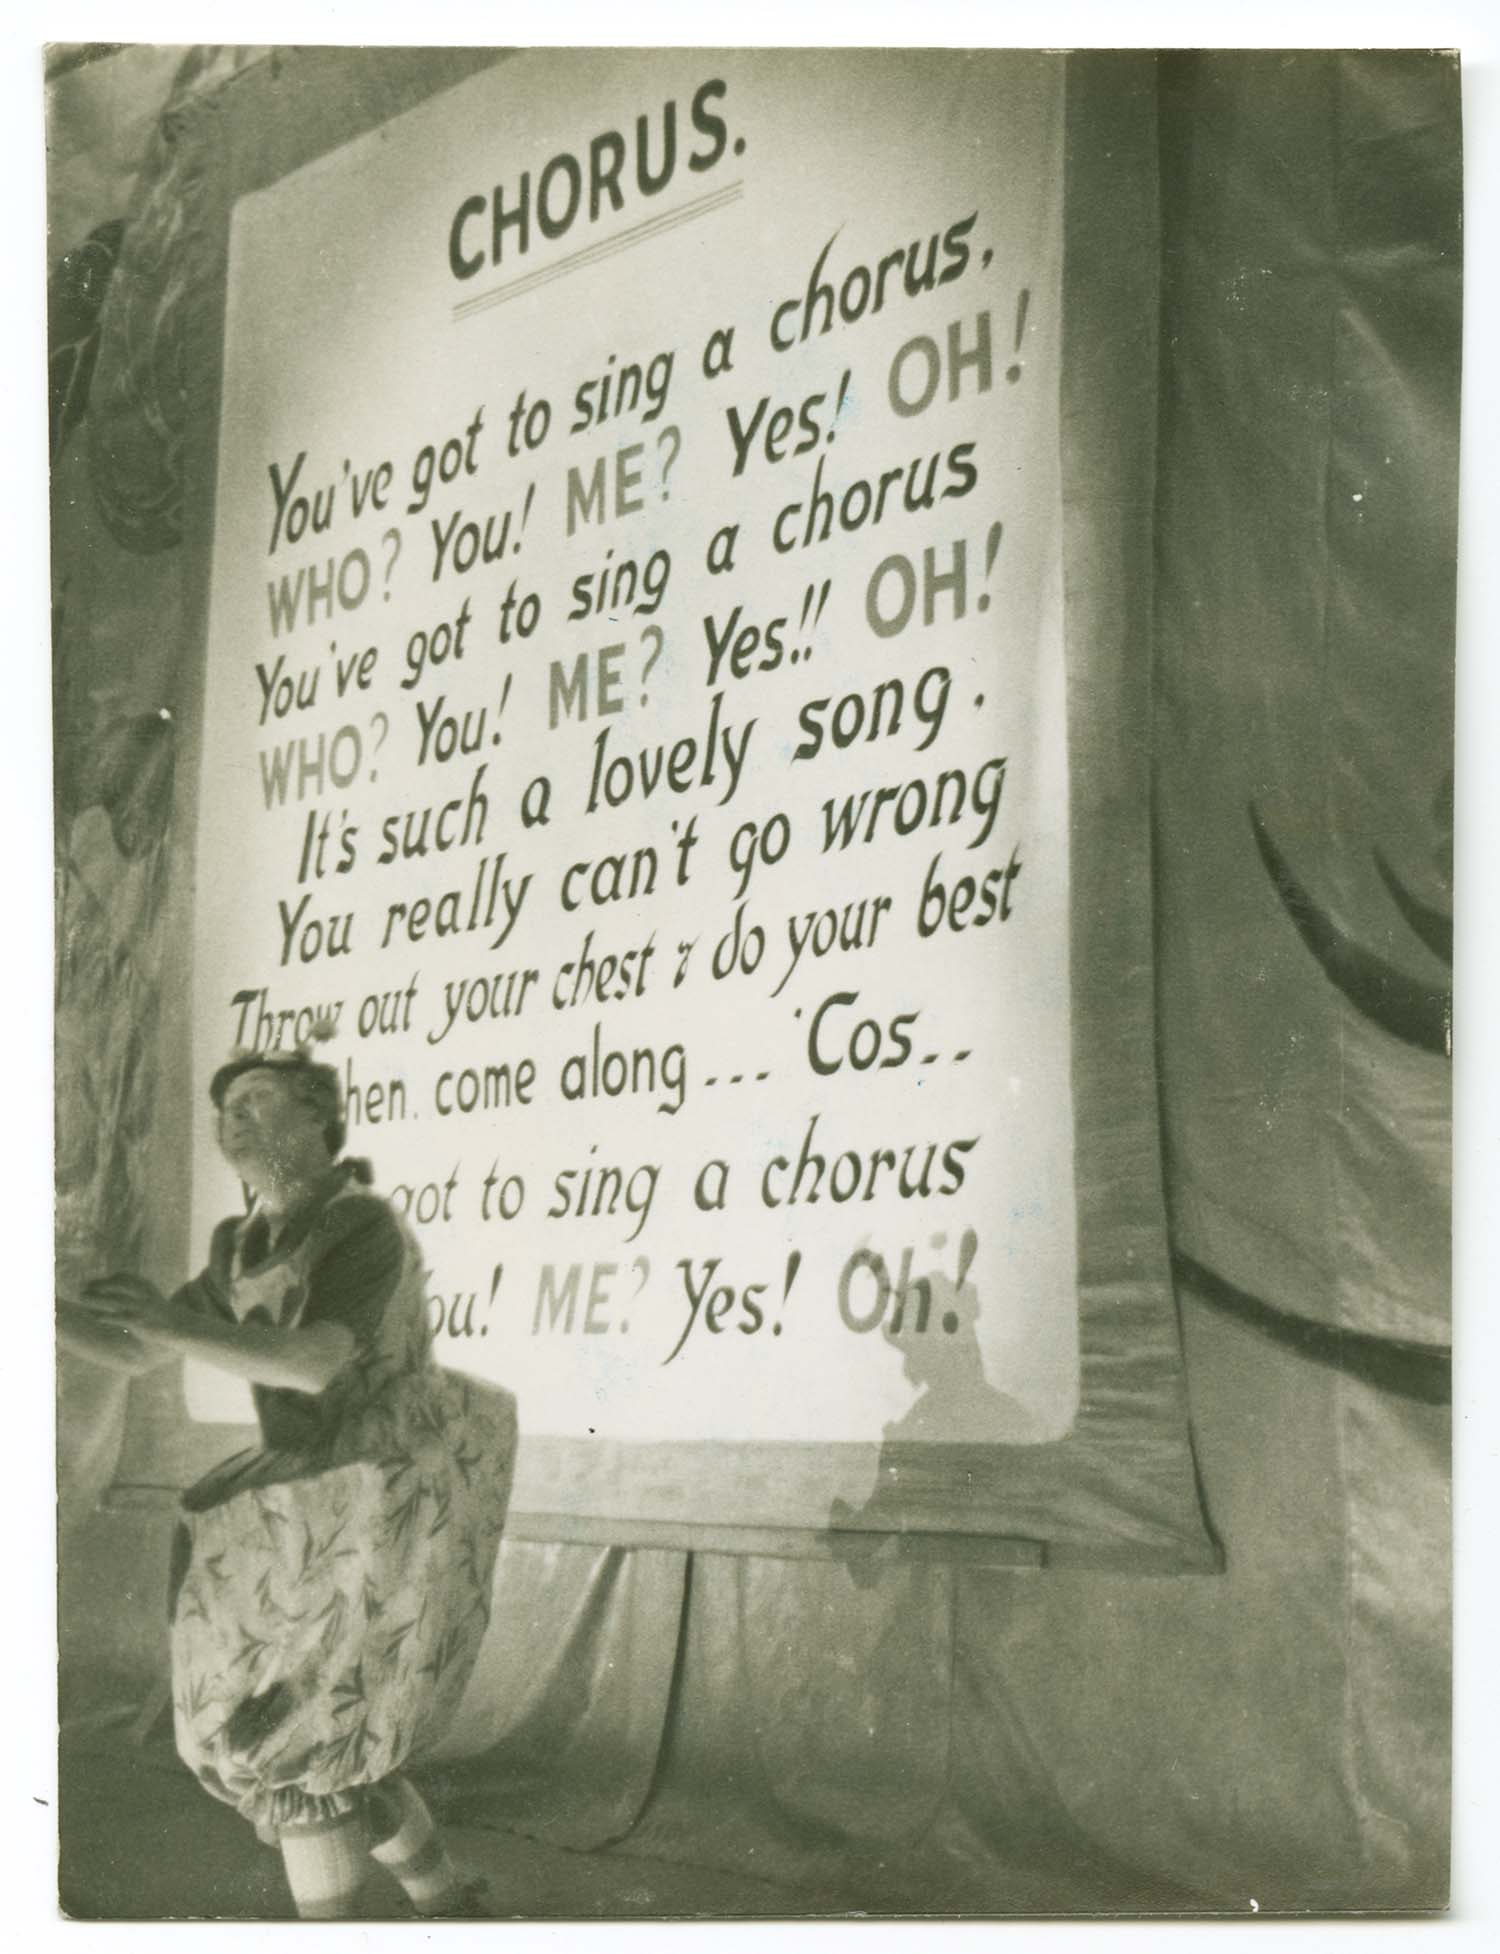 CHORUS.
You've got to sing a chorus,
WHO? You! ME? Yes! OH!
You've got to sing a chorus
WHO? You! ME? Yes!! OH!
It's such a lovely song.
You really can't go wrong
Throw out your chest & do your best
hen. come along... 'Cos..
got to sing a chorus
ou! ME? Yes! Oh!